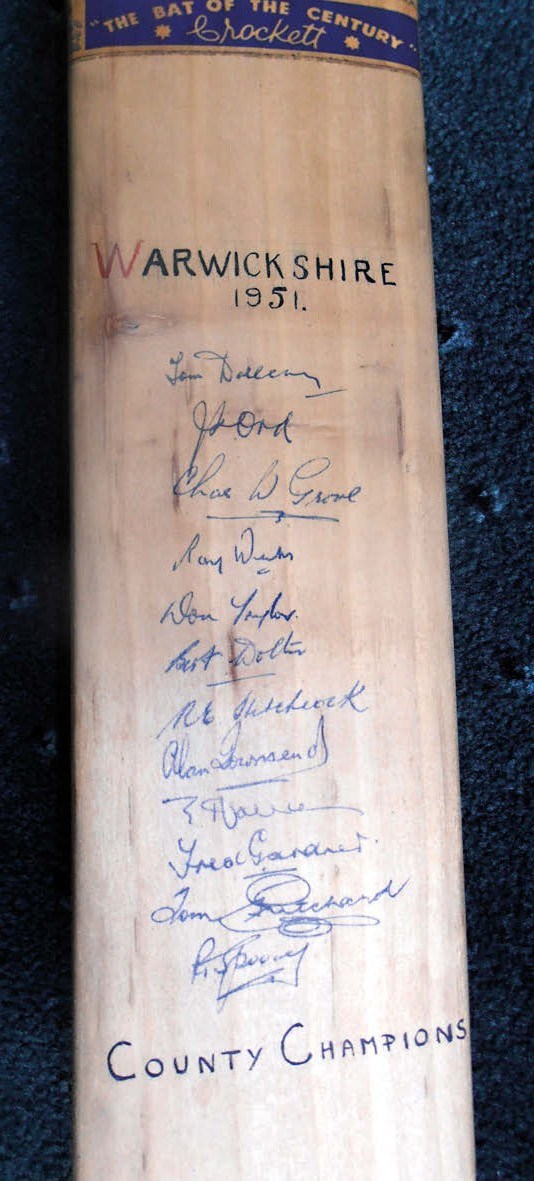 "THE BAT OF THE CENTURY"
Crockett
WARWICKSHIRE
1951.
Tom Dollery
J Ord
Chas W Grove
Ray Weeks
Don Taylor.
Bert Wolton
R E Hitchcock
Alan Townsend
Fred Gardner.
Tom Pritchard
R. Spooner
COUNTY CHAMPIONS